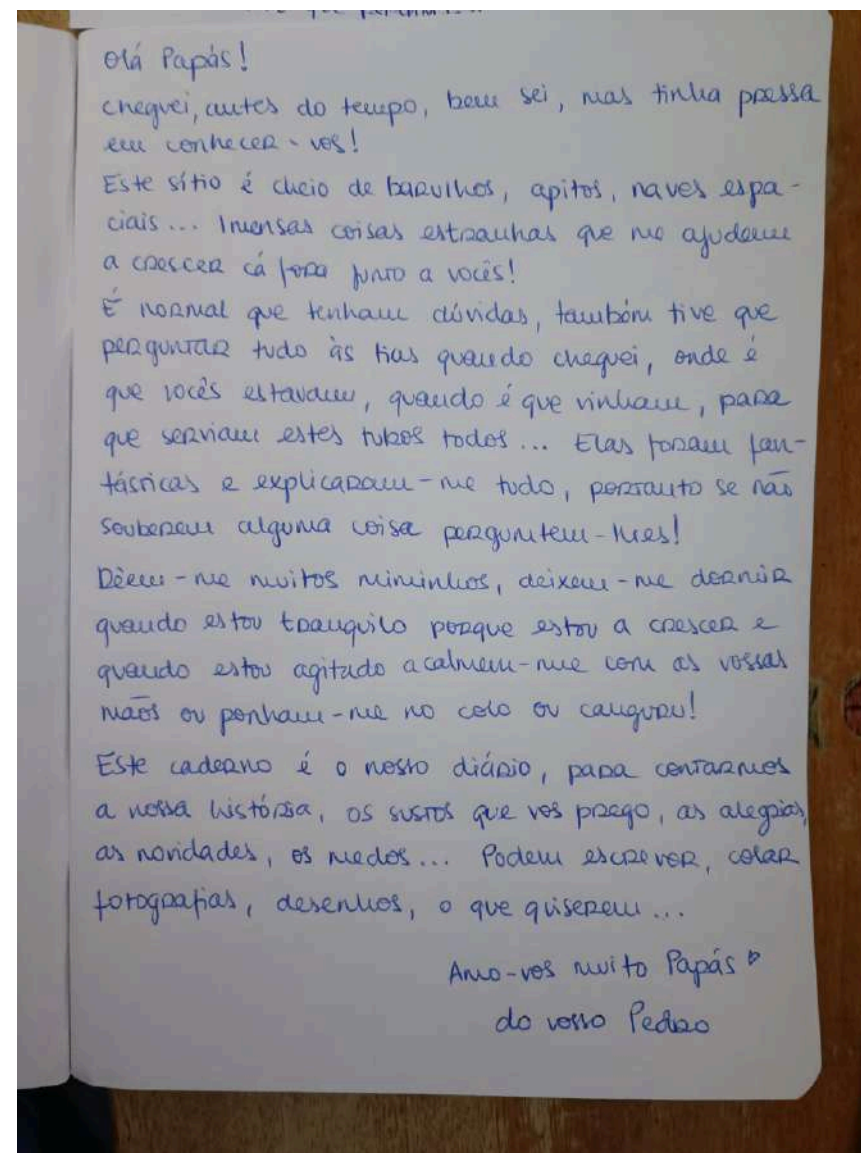 Olá Papás!
cheguei, antes do tempo, bem sei, mas tinha pressa
em conhecer-vos!
Este sítio é cheio de barulhos, apitos, naves espa-
ciais... Imensas coisas estranhas que me ajudam
a crescer cá fora junto a vocês!
É normal que tenham dúvidas, também tive que
perguntar tudo às tias quando cheguei, onde é
que vocês estavam, quando é que vinham, para
que serviam estes tubos todos... Elas foram fan-
tásticas e explicaram-me tudo, portanto se não
souberem alguma coisa perguntem-lhes!
Dêem-me muitos miminhos, deixem-me dormir
quando estou tranquilo porque estou a crescer e
quando estou agitado acalmem-me com as vossas
mãos ou ponham-me no colo ou canguru!
Este caderno é o nosso diário, para contarmos
a nossa história, os sustos que vos prego, as alegrias,
as novidades, os medos... Podem escrever, colar
fotografias, desenhos, o que quiserem...
Amo-vos muito Papás
do vosso Pedro